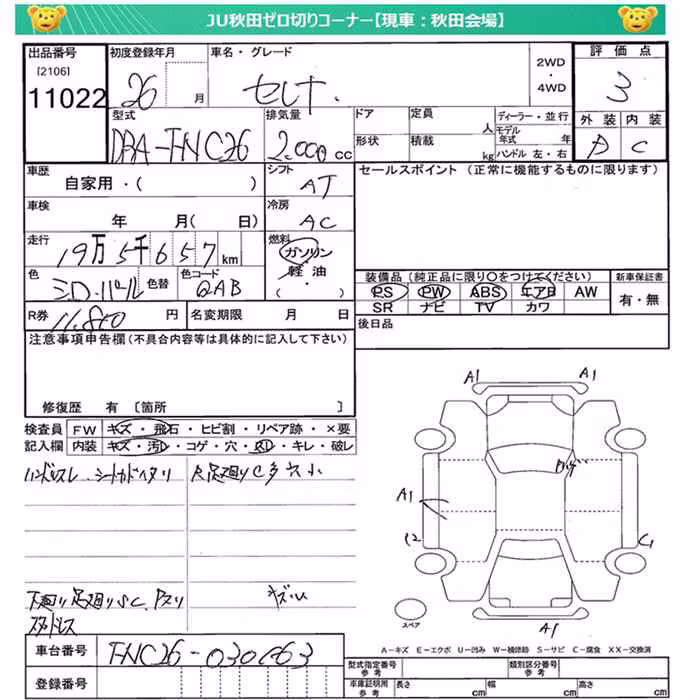 JU秋田ゼロ切りコーナー【現車：秋田会場】
出品番号 [2106] 11022
初度登録年月 26 月
車名・グレード セレナ
2WD・4WD
評価点 3
外装 内装 D C
型式 DBA-FNC26
排気量 2.000 cc
ドア 形状
定員 人 積載 kg
ディーラー・並行
モデル年式 年
ハンドル 左・右
車歴 自家用・( )
シフト AT
セールスポイント (正常に機能するものに限ります)
車検 年 月( 日)
冷房 AC
走行 19万5千657 km
燃料 ガソリン 軽油・( )
色 シロ・パール 色替
色コード QAB
装備品 (純正品に限り○をつけてください)
PS PW ABS エアB AW
SR ナビ TV カワ
新車保証書 有・無
R券 11.860 円
名変期限 月 日
後日品
注意事項申告欄 (不具合内容等は具体的に記入して下さい)
修復歴 有 [箇所 ]
検査員記入欄
FW キズ・飛石・ヒビ割・リペア跡・×要
内装 キズ・汚レ・コゲ・穴・スリ・キレ・破レ
ハンドルスレ
下廻り足廻りSC
A1 A1
A1
C2 C1
A1
スペア
A－キズ E－エクボ U－凹み W－補修跡 S－サビ C－腐食 XX－交換済
車台番号
登録番号
型式指定番号 参考
類別区分番号 参考
車庫証明用 参考 長さ cm 幅 cm 高さ cm